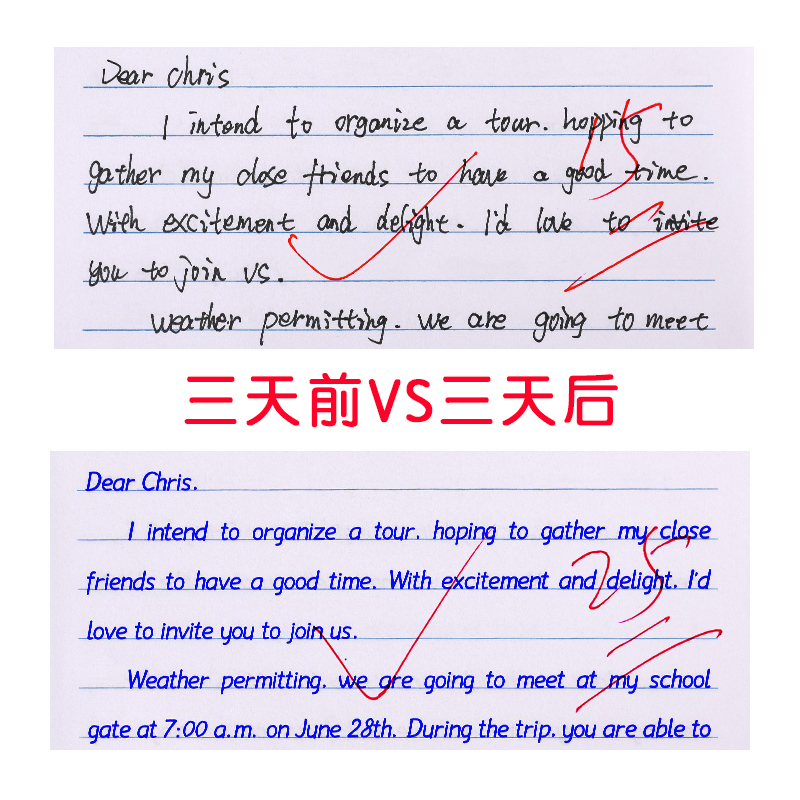 Dear Chris
I intend to organize a tour. hopping to
gather my close friends to have a good time.
With excitement and delight. I'd love to invite
you to join vs.
Weather permitting. we are going to meet
15
三天前VS三天后
Dear Chris.
I intend to organize a tour. hoping to gather my close
friends to have a good time. With excitement and delight. I'd
love to invite you to join us.
Weather permitting. we are going to meet at my school
gate at 7:00 a.m. on June 28th. During the trip. you are able to
25